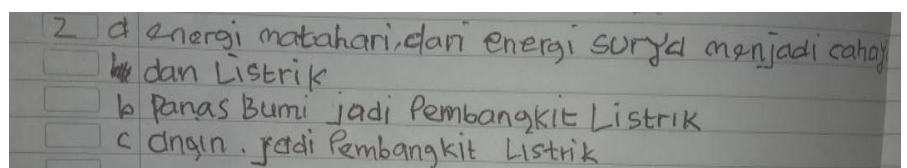 2 a energi matahari, dari energi surya menjadi cahay
dan Listrik
b Panas Bumi jadi Pembangkit Listrik
c angin. jadi Pembangkit Listrik